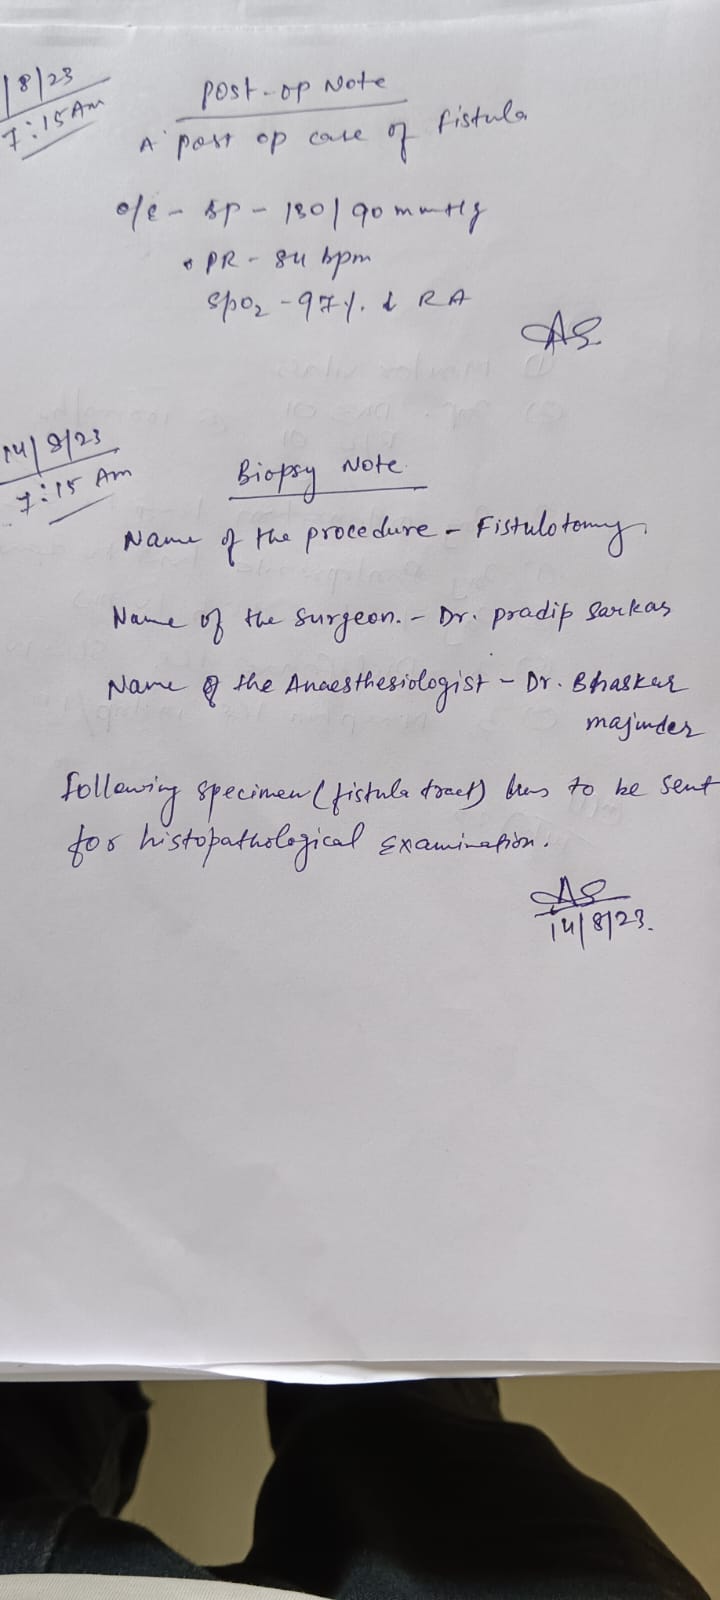 /8/23
7:15 AM
Post-op Note
A post op case of fistula
o/e - BP - 130/90 mmHg
PR - 84 bpm
SpO2 - 97% RA
AS
14/8/23
7:15 Am
Biopsy Note
Name of the procedure - Fistulotomy
Name of the surgeon. - Dr. pradip Sarkar
Name of the Anaesthesiologist - Dr. Bhaskar
majumder
following specimen (fistula tract) has to be sent
for histopathological Examination.
AS
14/8/23.